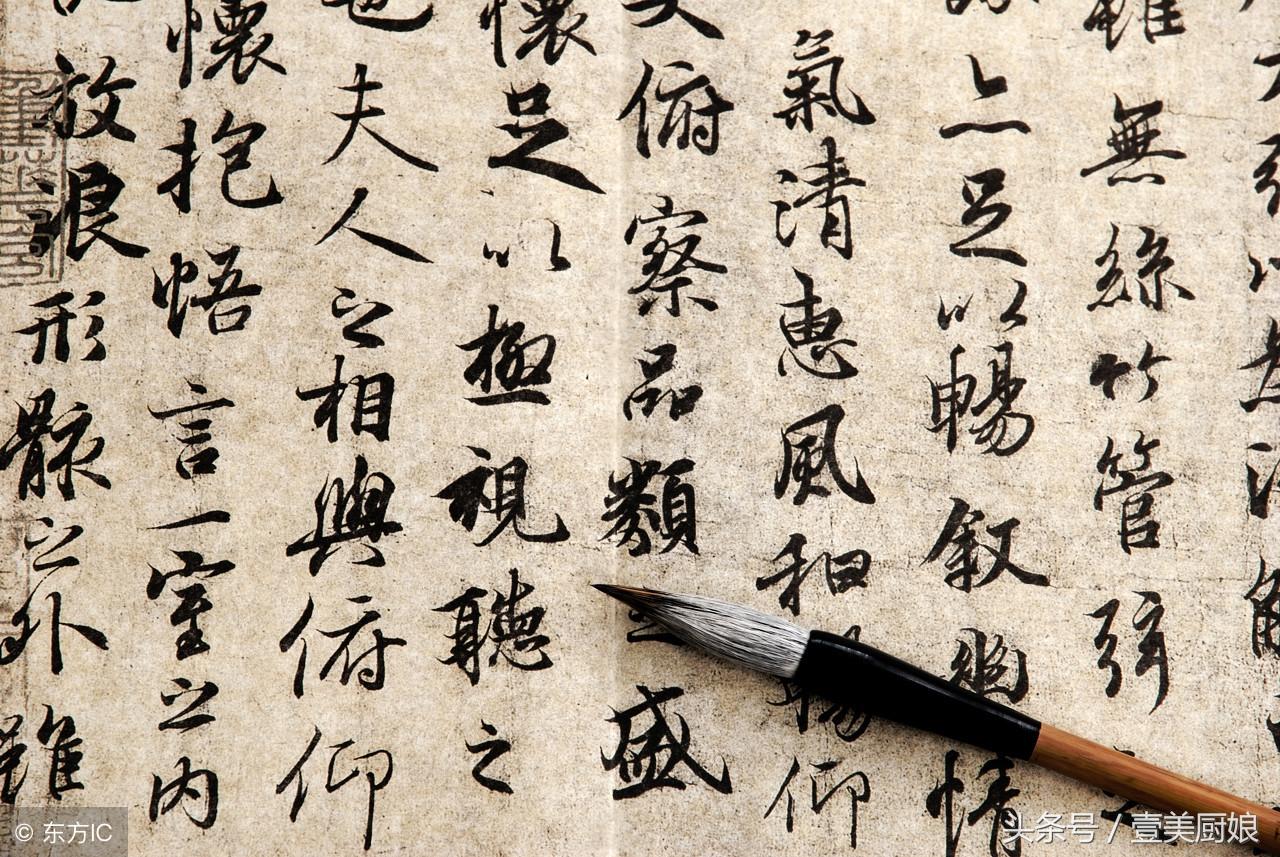 雖無絲竹管弦
亦足以暢叙幽情
氣清惠風和暢仰
大俯察品類之盛
懷足以極視聽之
也夫人之相與俯仰
懷抱悟言一室之内
放浪形骸之外雖
© 东方IC
头条号 / 壹美厨娘